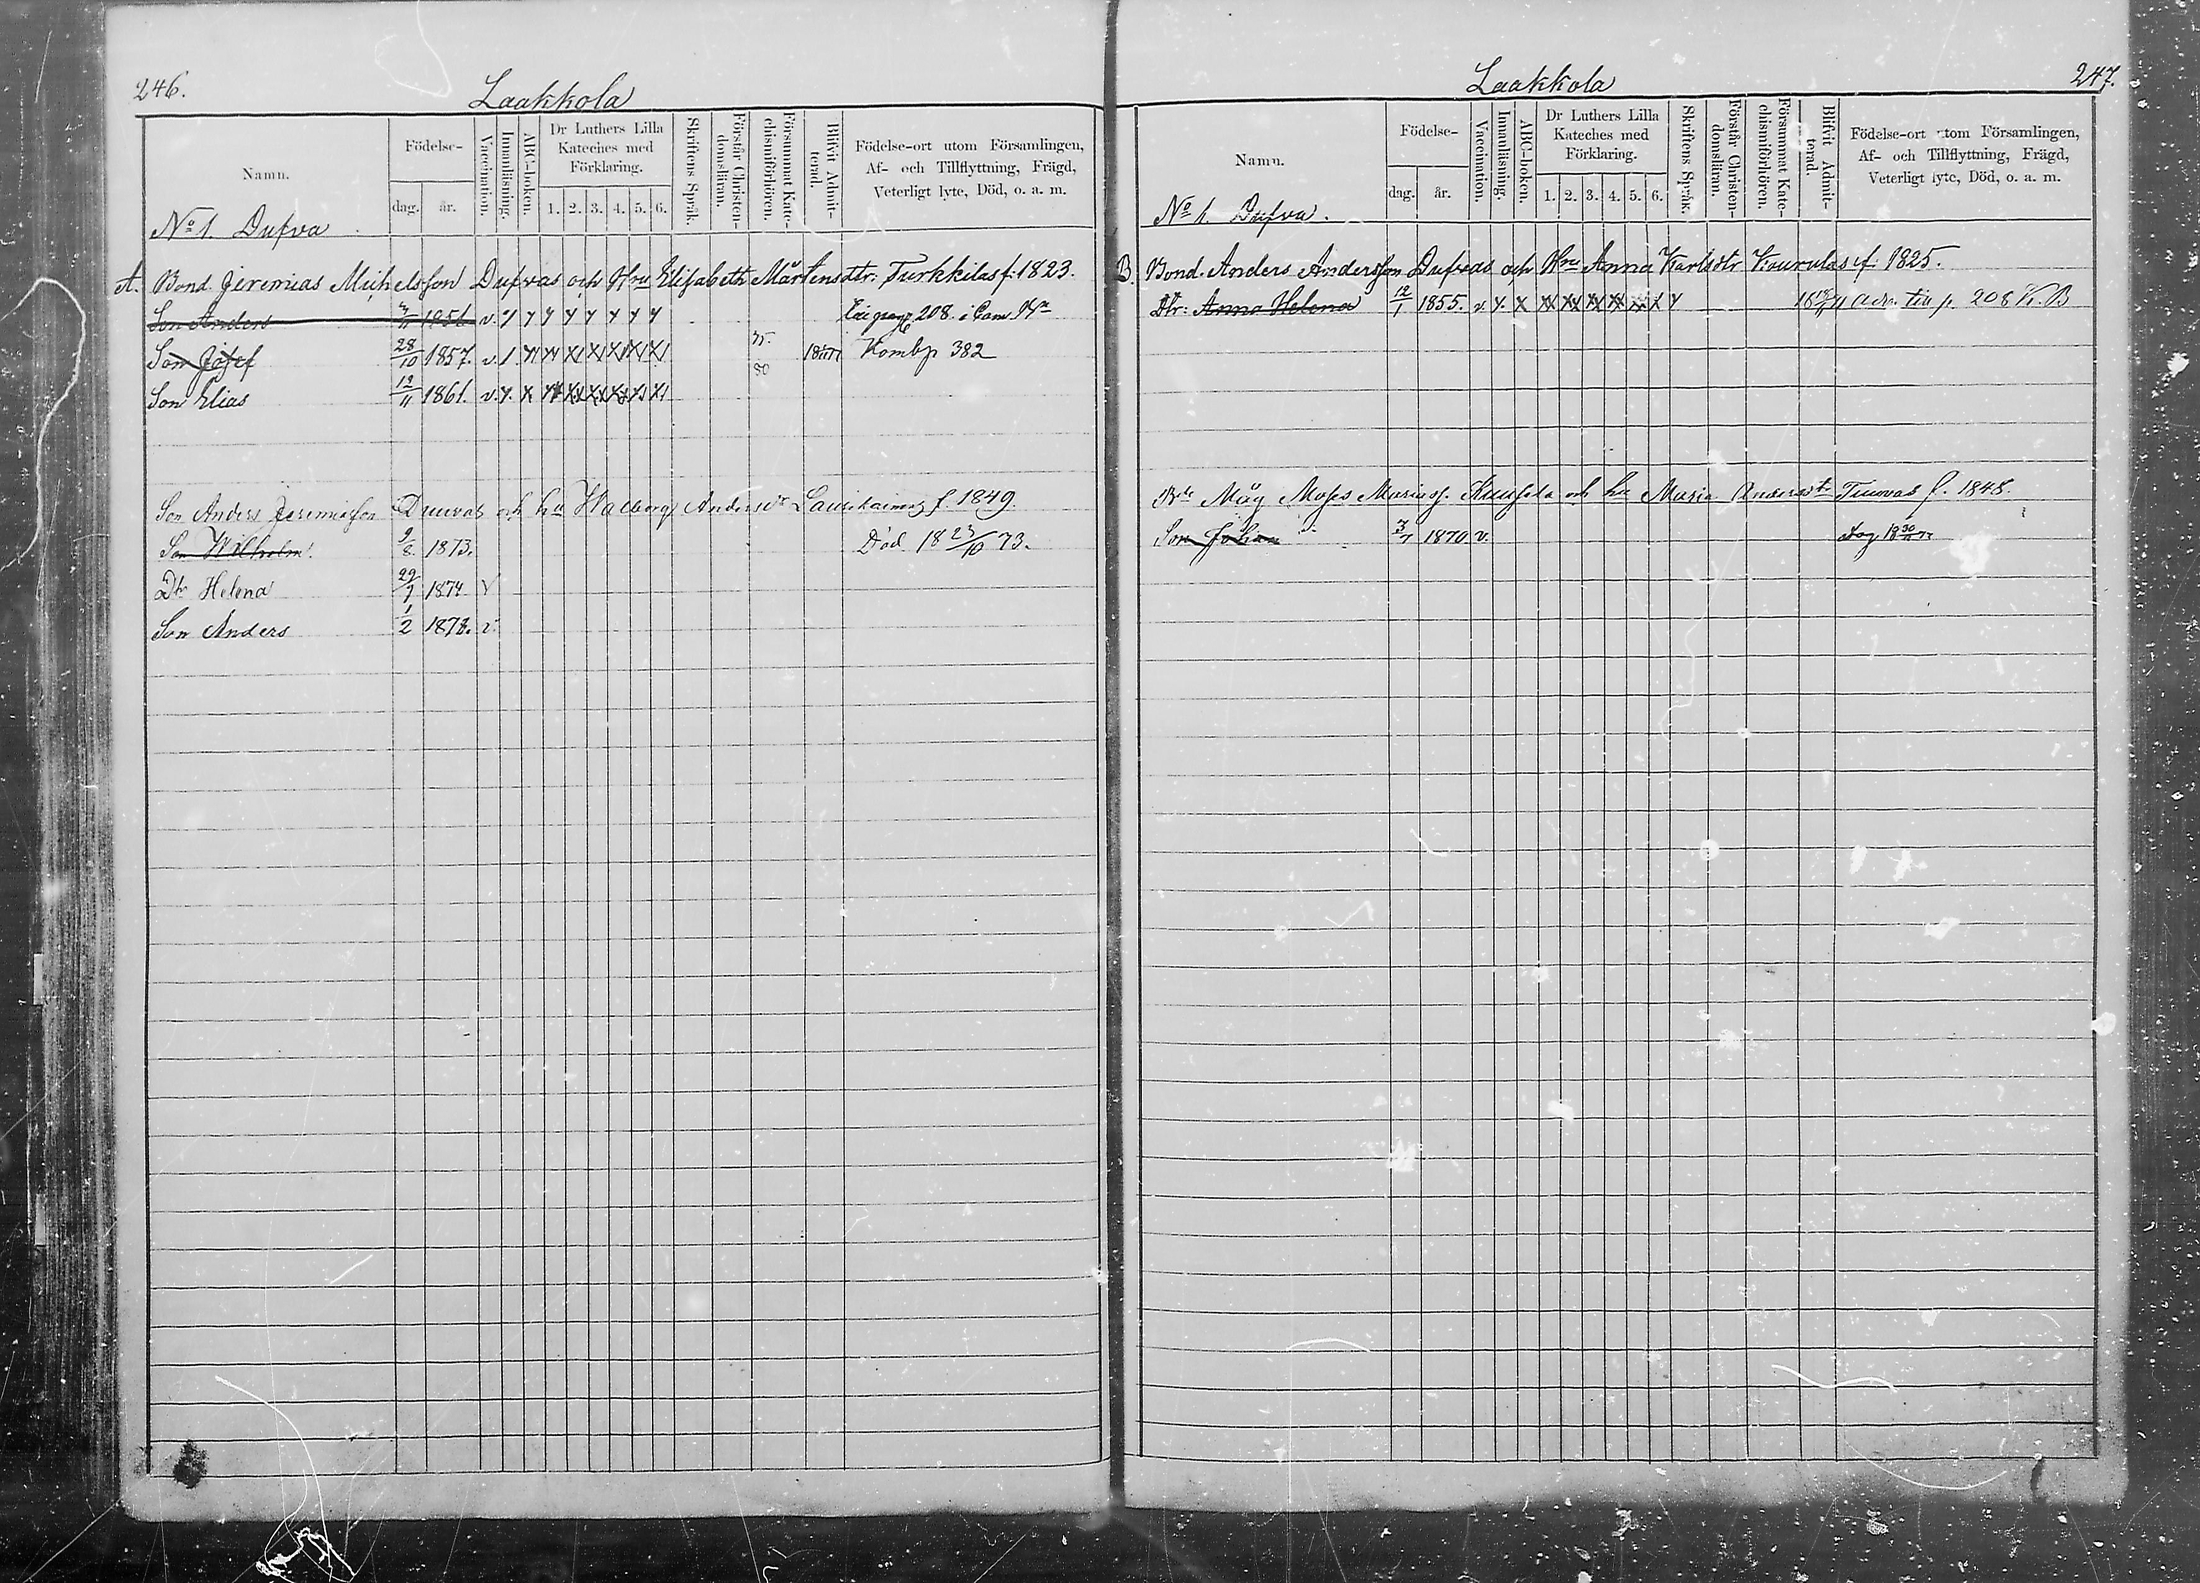 246.
Laakkola
Namn.
Födelse-
dag.
år.
Vaccination.
Innanläsning.
ABC-boken.
Dr Luthers Lilla
Kateches med
Förklaring.
1. 2. 3. 4. 5. 6.
Skriftens Språk.
Förstår Christen-
domsläran.
Försummat Kate-
chismiförhören.
Blifvit Admit-
terad.
Födelse-ort utom Församlingen,
Af- och Tillflyttning, Frägd,
Veterligt lyte, Död, o. a. m.
No 1. Dufva
A. Bond. Jeremias Michelsson Dufvas och Hru Elisabeth Mårtensdtr: Turkkilas f: 1823.
Son Anders 1851. v. 208. i Cam
Son Josef 28/10 1857. v. 75. 80 Komb. p 382
Son Elias 12/11 1861. v.
Son Anders Jeremiasson Duuvas och hu Walborg Andersdr f. 1849.
Son Wilhelm 9/8 1873. Död 18 23/10 73.
Dtr Helena 29/9 1874 v
Son Anders 1/2 1878. v.
247.
Laakkola
Namn.
Födelse-
dag.
år.
Vaccination.
Innanläsning.
ABC-boken.
Dr Luthers Lilla
Kateches med
Förklaring.
1. 2. 3. 4. 5. 6.
Skriftens Språk.
Förstår Christen-
domsläran.
Försummat Kate-
chismiförhören.
Blifvit Admit-
terad.
Födelse-ort utom Församlingen,
Af- och Tillflyttning, Frägd,
Veterligt lyte, Död, o. a. m.
No 1. Dufva.
B. Bond. Anders Andersson Dufvas och Hru Anna Karlsdtr Kourulas f: 1825.
Dtr: Anna Helena 12/1 1855. v. 208 K. B
Måg Moses och hu Maria Andersdtr Tuovas f. 1848.
Son Johan 3/7 1870 v.